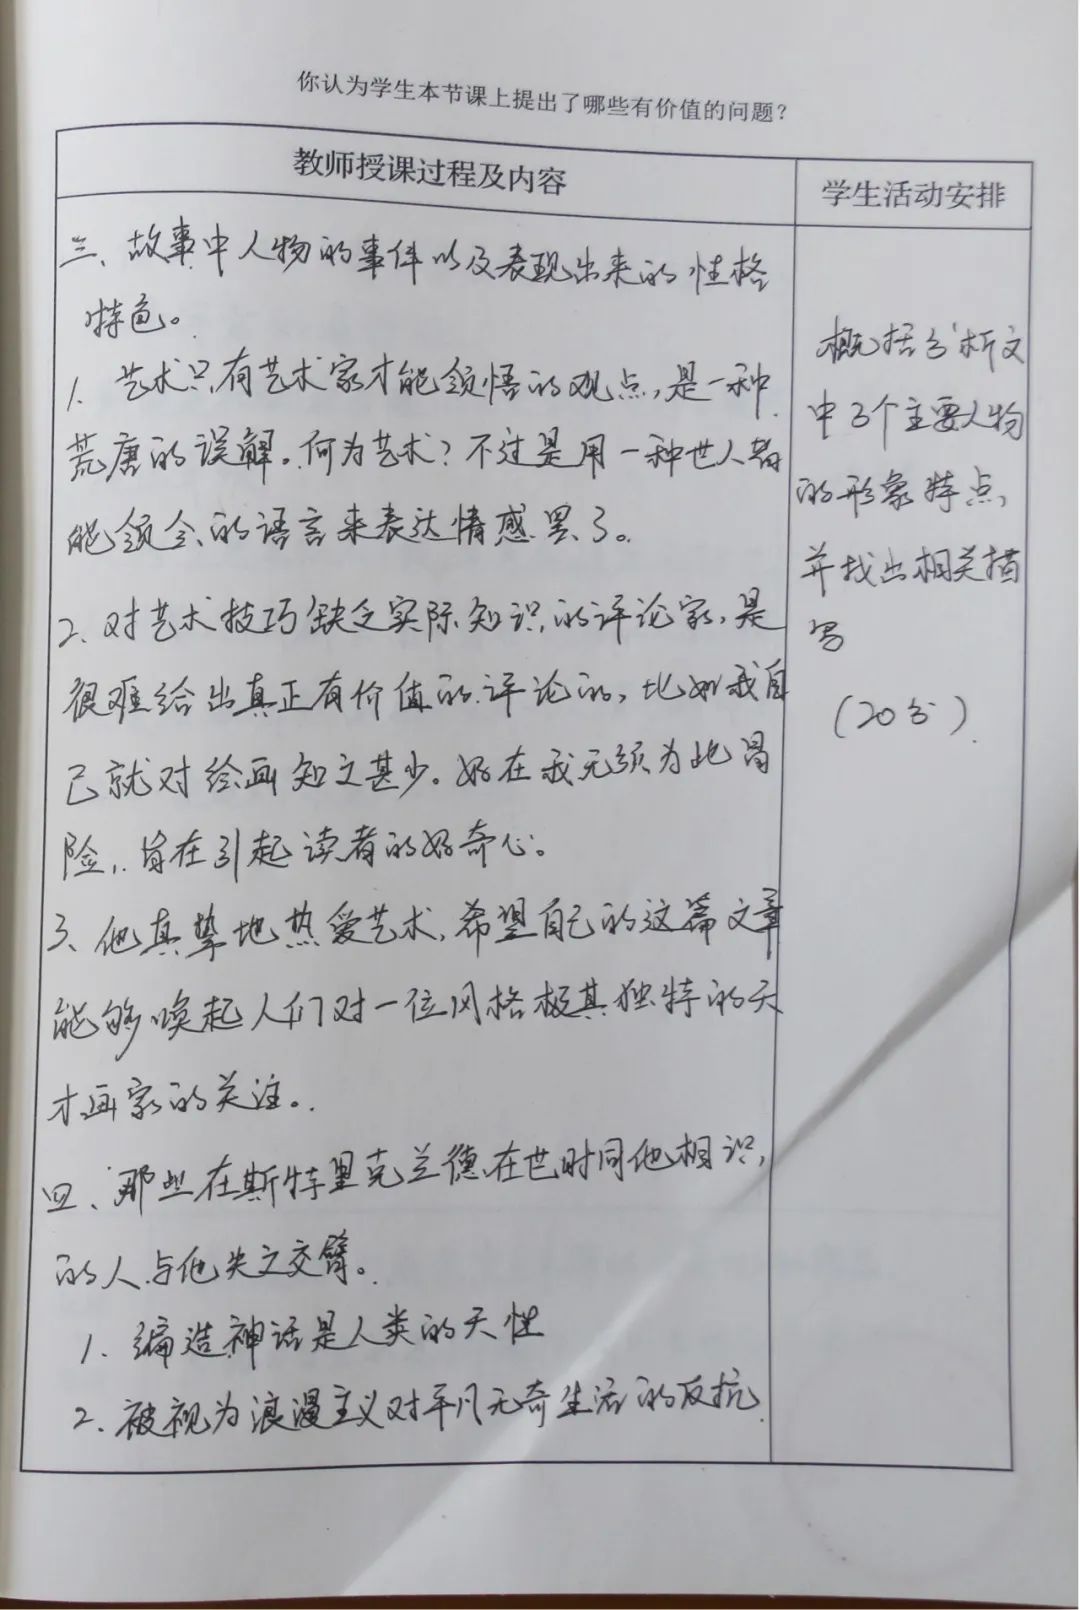 你认为学生本节课上提出了哪些有价值的问题？
教师授课过程及内容
学生活动安排
三、故事中人物的事件以及表现出来的性格
特色。
1、艺术只有艺术家才能领悟的观点，是一种
荒唐的误解。何为艺术？不过是用一种世人都
能领会的语言来表达情感罢了。
2、对艺术技巧缺乏实际知识的评论家，是
很难给出真正有价值的评论的，比如我自
己就对绘画知之甚少。好在我无须为此冒
险，旨在引起读者的好奇心。
3、他真挚地热爱艺术，希望自己的这篇文章
能够唤起人们对一位风格极其独特的天
才画家的关注。
四、那些在斯特里克兰德在世时同他相识，
的人与他失之交臂。
1、编造神话是人类的天性
2、被视为浪漫主义对平凡无奇生活的反抗
概括分析文
中3个主要人物
的形象特点，
并找出相关描
写
（20分）